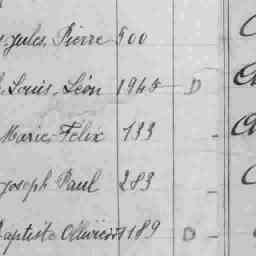 Jules, Pierre 500
Louis, Léon 1945 D
Marie, Félix 133 -
Joseph Paul 283 -
Baptiste 1189 D -